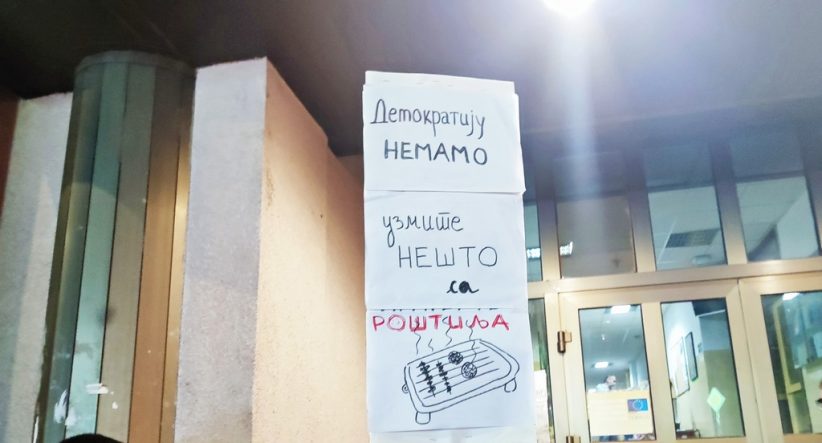 Демократију
НЕМАМО
узмите
НЕШТО
са
РОШТИЉА